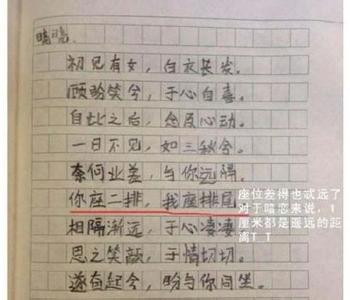 暗恋.
初见有女，白衣长发。
顾盼笑兮，于心自喜。
自此之后，念及心动。
一日不见，如三秋兮。
奈何业差，与你远隔。
你座二排，我座排尾
相隔渐远，于心凄凄。
思之笑颜，于情切切。
遂自起今，盼与你同坐。
座位差得也忒远了
对于暗恋来说，1
厘米都是遥远的距
离T_T